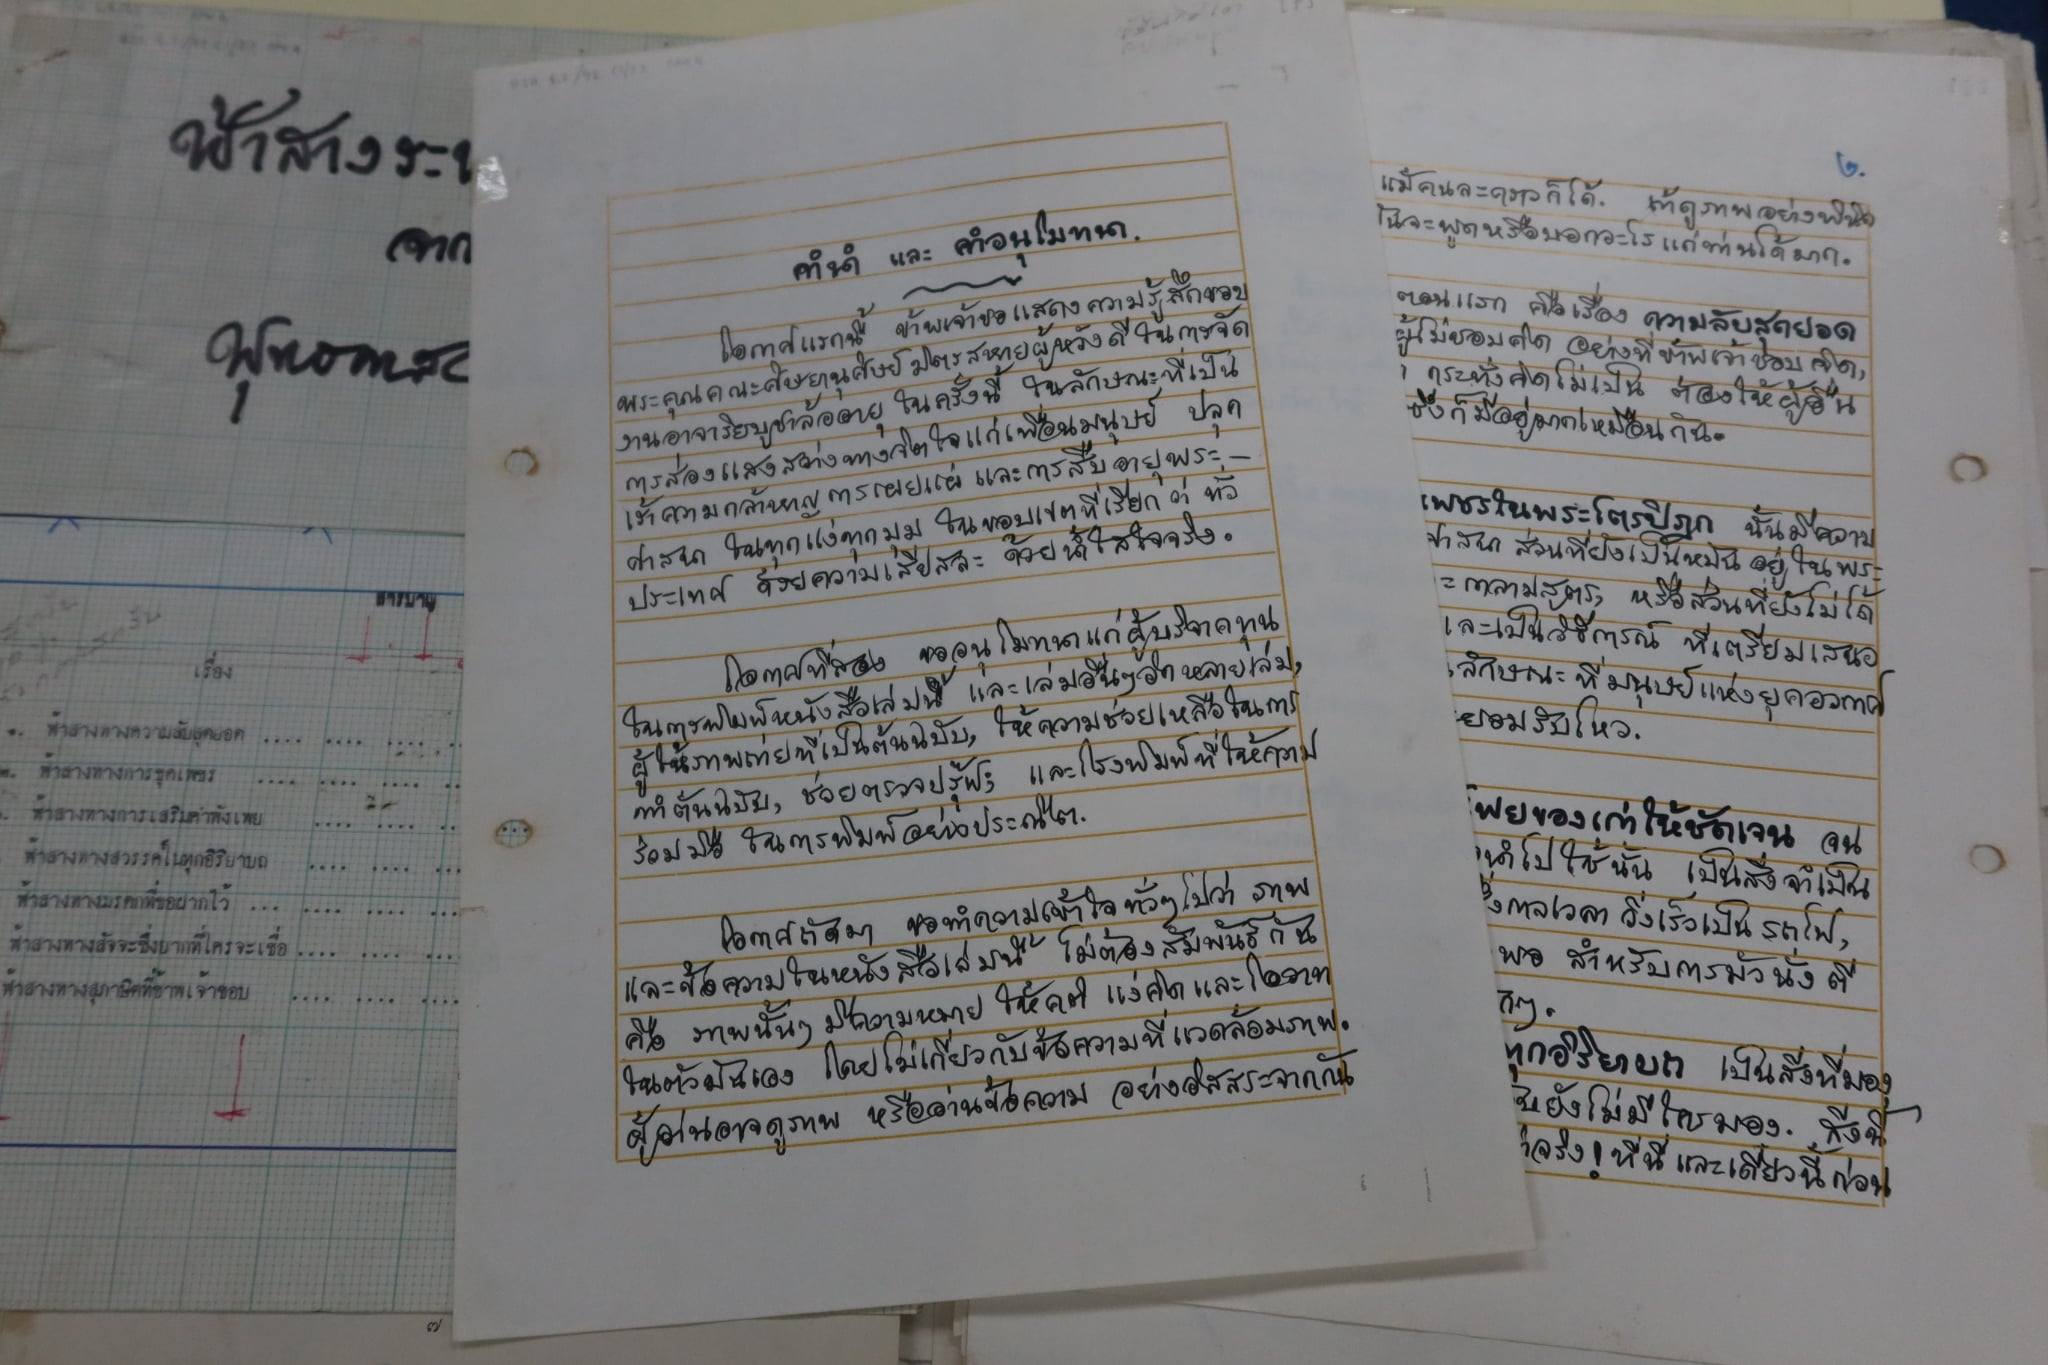 ฟ้าสางระ
จาก
พุทธทาส
สารบาญ
เรื่อง
ฟ้าสางทางความลับสุดยอด .... .... ....
ฟ้าสางทางการขุดเพชร .... .... ....
ฟ้าสางทางการเสริมค่าพังเพย .... .... ....
ฟ้าสางทางสวรรค์ในทุกอิริยาบถ .... .... ....
ฟ้าสางทางมรดกที่ขอฝากไว้ ... .... ....
ฟ้าสางทางสัจจะซึ่งยากที่ใครจะเชื่อ .... .... ....
ฟ้าสางทางสุภาษิตที่ข้าพเจ้าชอบ .... .... ....
๗
คำนำ และ คำอนุโมทนา.
โอกาศแรกนี้ ข้าพเจ้าขอแสดงความรู้สึกขอบ
พระคุณคณะศิษยานุศิษย์ มิตรสหายผู้หวังดี ในการจัด
งานอาจาริยบูชาล้ออายุ ในครั้งนี้ ในลักษณะที่เป็น
การส่องแสงสว่างทางจิตใจแก่เพื่อนมนุษย์ ปลุก
เร้าความกล้าหาญ การเผยแผ่ และการสืบอายุพระ–
ศาสนา ในทุกแง่ทุกมุม ในขอบเขตที่เรียกว่า ทั่ว
ประเทศ ด้วยความเสียสละ ด้วยน้ำใสใจจริง.
โอกาศที่สอง ขออนุโมทนาแก่ผู้บริจาคทุน
ในการพิมพ์หนังสือเล่มนี้ และเล่มอื่นๆอีกหลายเล่ม,
ผู้ให้ภาพถ่ายที่เป็นต้นฉบับ, ให้ความช่วยเหลือในการ
ทำต้นฉบับ, ช่วยตรวจปรู๊ฟ; และโรงพิมพ์ที่ให้ความ
ร่วมมือ ในการพิมพ์อย่างประณีต.
โอกาศถัดมา ขอทำความเข้าใจทั่วๆไปว่า ภาพ
และข้อความในหนังสือเล่มนี้ ไม่ต้องสัมพันธ์กัน
คือ ภาพนั้นๆ มีความหมาย ให้คติ แง่คิด และโอวาท
ในตัวมันเอง โดยไม่เกี่ยวกับข้อความที่แวดล้อมภาพ.
ผู้อ่านอาจดูภาพ หรืออ่านข้อความ อย่างอิสสระจากกัน
๒.
แม้คนละคราวก็ได้. ถ้าดูภาพอย่างพินิจ
จะพูดหรือบอกอะไรแก่ท่านได้มาก.
ตอนแรก คือเรื่อง ความลับสุดยอด
ผู้ไม่ชอบคิด อย่างที่ข้าพเจ้าชอบคิด,
กระทั่งคิดไม่เป็น ต้องให้ผู้อื่น
ซึ่งก็มีอยู่มากเหมือนกัน.
เพชรในพระไตรปิฎก นั้นมีความ
ศาสนา ส่วนที่ยังเป็นหมันอยู่ในพระ
กาลามสูตร, หรือส่วนที่ยังไม่ได้
และเป็นวิธีการณ์ ที่เตรียมเสนอ
ลักษณะ ที่มนุษย์แห่งยุคอวกาศ
ยอมรับไหว.
เพยของเก่าให้ชัดเจน จน
นำไปใช้นั้น เป็นสิ่งจำเป็น
กาลเวลา วิ่งเร็วเป็น รถไฟ,
พอ สำหรับการมัวนั่งตี
ทุกอิริยาบถ เป็นสิ่งที่มอง
ยังไม่มีใครมอง. สิ่งนี้
จริง! ที่นี่ และเดี๋ยวนี้ ก่อน